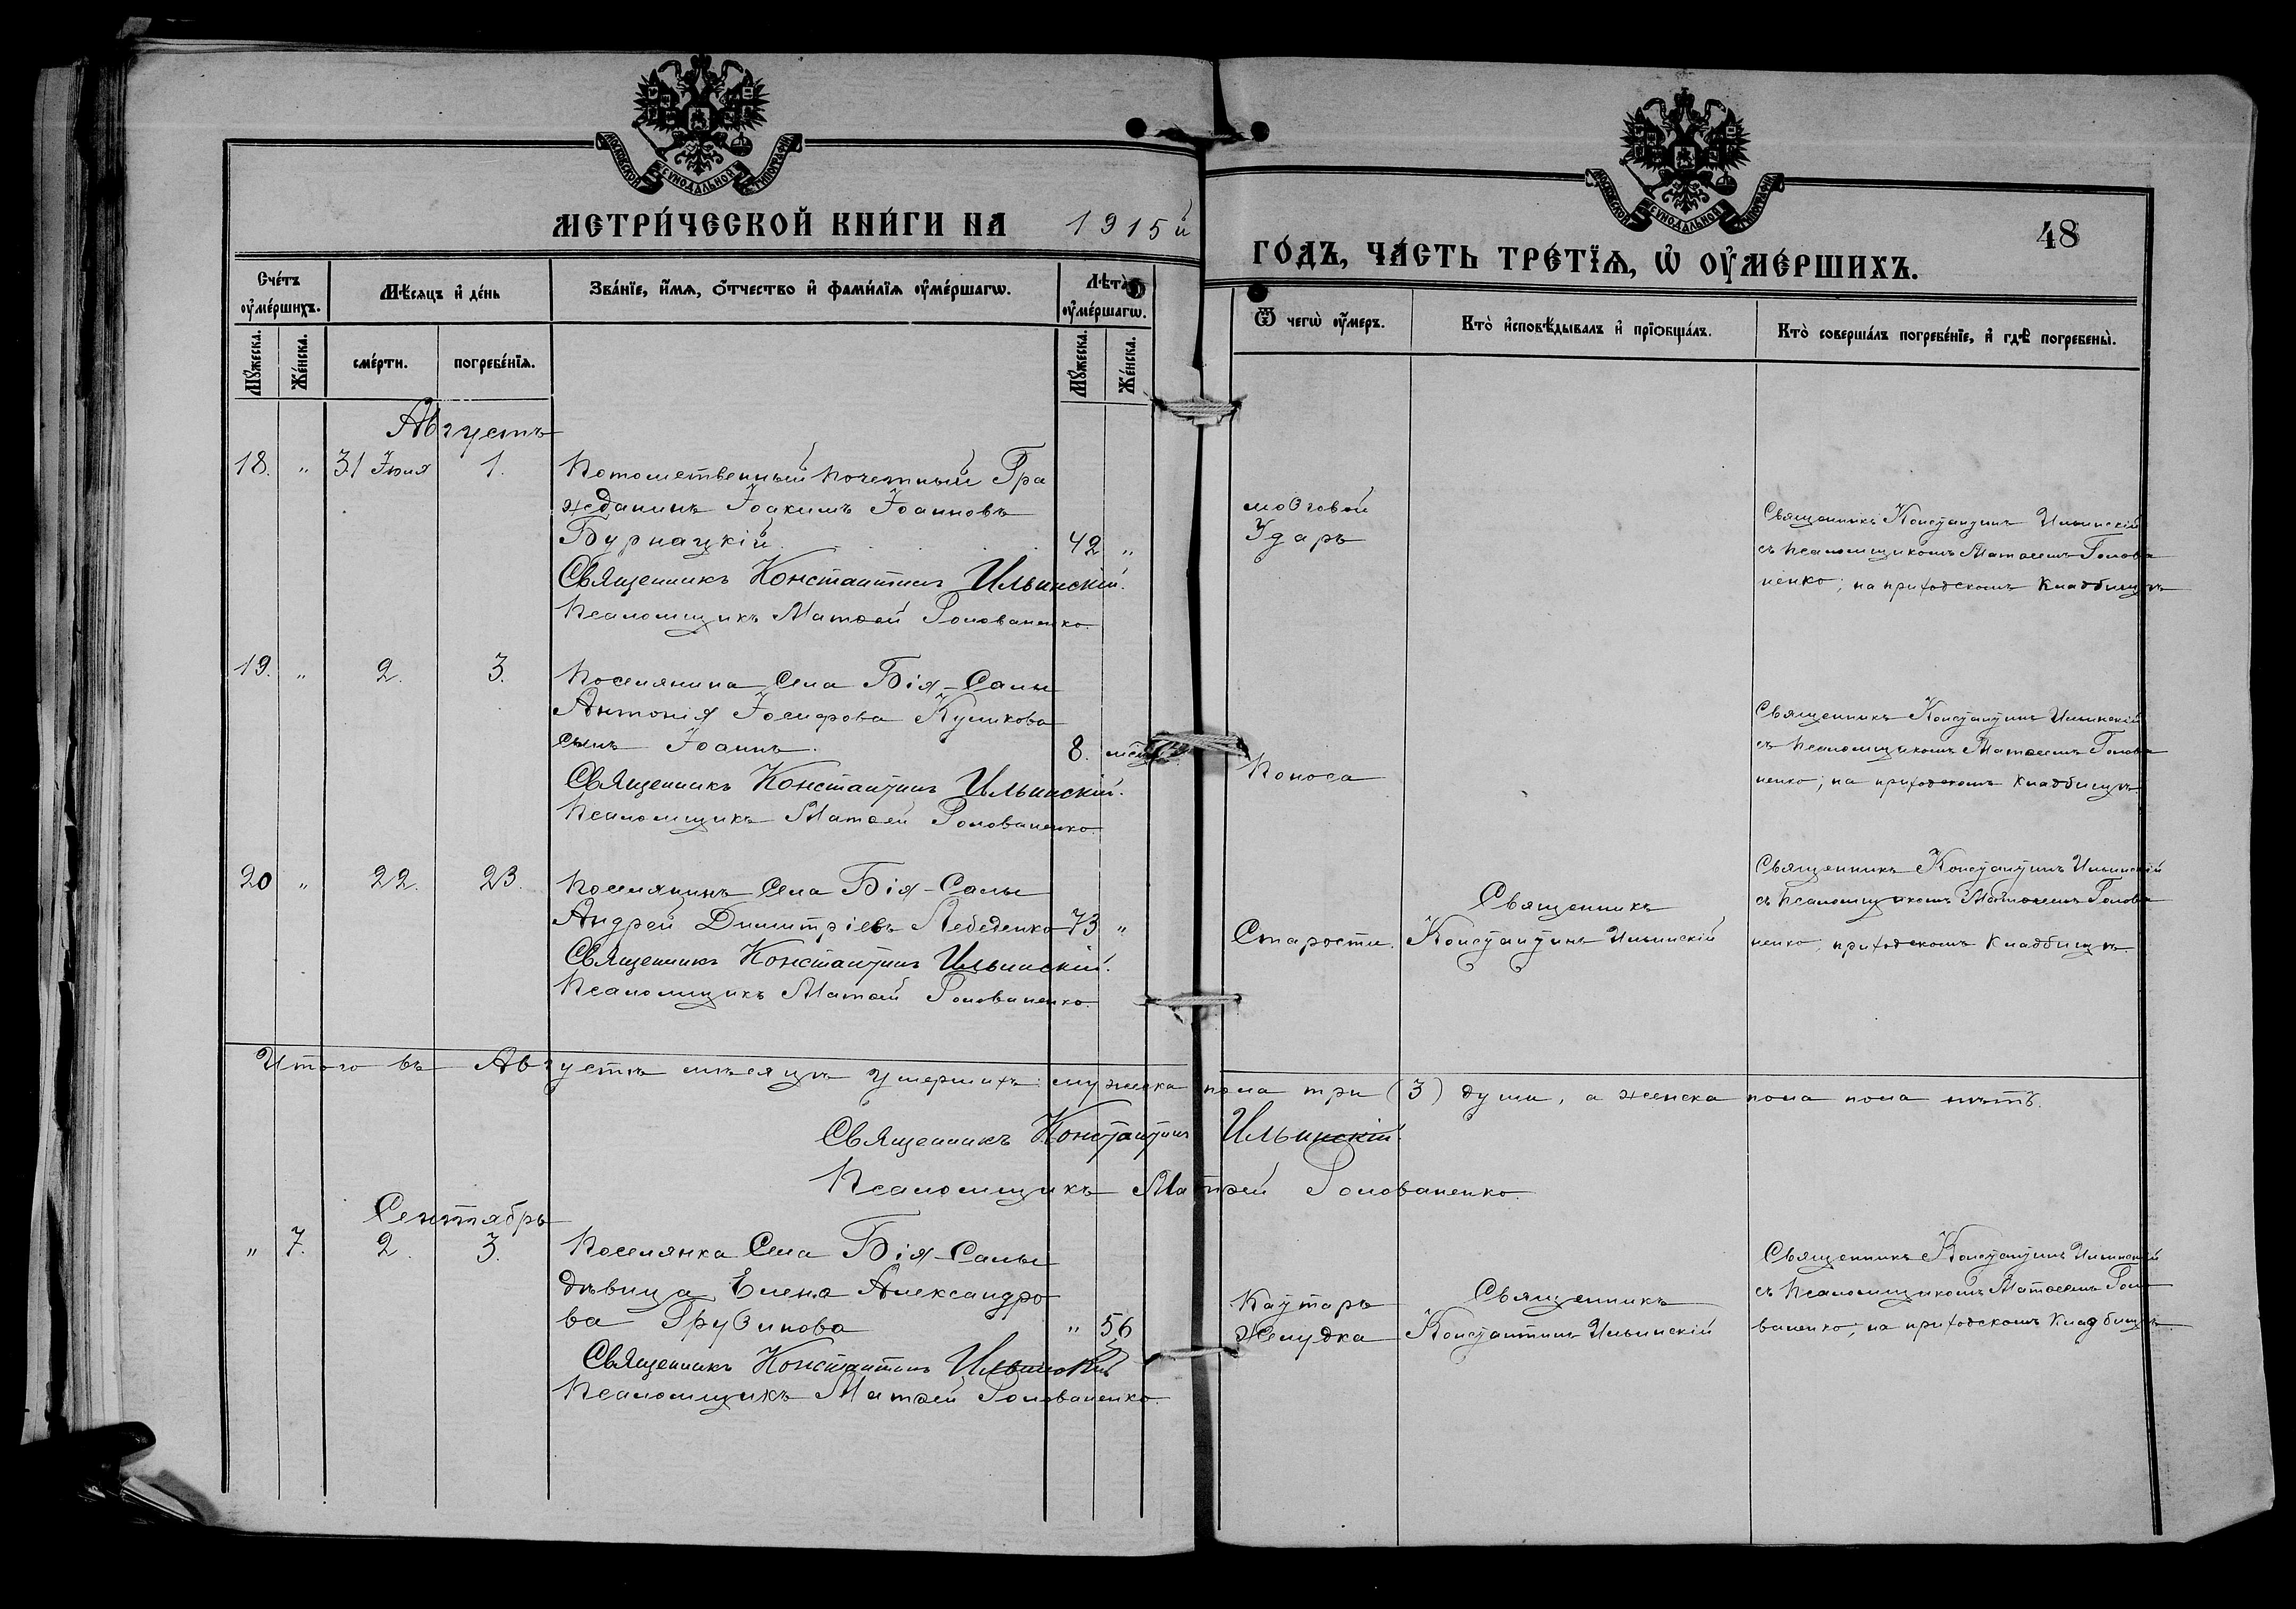 МОСКОВСКОЙ СѴНОДАЛЬНОЙ ТИПОГРАФІИ
МЕТРИ́ЧЕСКОЙ КНИ́ГИ НА 1915й
ГО́ДЪ, ЧА́СТЬ ТРЕ́ТЇѦ, Ѡ҆ ОУ҆МЕ́РШИХЪ.
МОСКОВСКОЙ СѴНОДАЛЬНОЙ ТИПОГРАФІИ
48
Сче́тъ оу҆ме́ршихъ.
Мѣ́сяцъ и҆ де́нь
Зва́нїе, и҆́мѧ, ѻ҆́тчество и҆ фами́лїѧ оу҆ме́ршагѡ.
Лѣта̀ оу҆ме́ршагѡ.
Ѿ чегѡ̀ оу҆́меръ.
Кто̀ и҆сповѣ́дывалъ и҆ прїѻбща́лъ.
Кто̀ соверша́лъ погребе́нїе, и҆ гдѣ̀ погребены̀.
Мꙋ́жеска.
Же́нска.
сме́рти.
погребе́нїѧ.
Мꙋ́жеска.
Же́нска.
Августъ
18. " 31 Іюля 1. Потомственный почетный Гра
жданинъ Іоакимъ Іоанновъ
Бурнацкій 42 "
Священникъ Константинъ Ильинскій.
Псаломщикъ Матѳей Голованенко.
мозговой
Ударъ
Священникъ Константинъ Ильинскій
съ псаломщикомъ Матѳеемъ Голова
ненко; на приходскомъ кладбищѣ
19. " 2. 3. Поселянина села Бія-Салы
Антонія Іосифова Куликова
сынъ Іоаннъ. 8. мѣс
Священникъ Константинъ Ильинскій.
Псаломщикъ Матѳей Голованенко.
Поноса
Священникъ Константинъ Ильинскій
съ псаломщикомъ Матѳеемъ Голова
ненко; на приходскомъ кладбищѣ.
20 " 22. 23. Поселянинъ села Бія-Салы
Андрей Димитріевъ Лебеденко 73 "
Священникъ Константинъ Ильинскій.
Псаломщикъ Матѳей Голованенко.
Старости.
Священникъ
Константинъ Ильинскій
Священникъ Константинъ Ильинскій
съ псаломщикомъ Матѳеемъ Голова
ненко, приходскомъ кладбищѣ.
Итого въ Августѣ мѣсяцѣ умершихъ: мужеска пола три (3) души, а женска пола пола нѣтъ.
Священникъ Константинъ Ильинскій.
Псаломщикъ Матѳей Голованенко.
Сентябрь
" 7. 2. 3. Поселянка села Бія-Салы
дѣвица Елена Александро
ва Грузинова " 56
Священникъ Константинъ Ильинскій
Псаломщикъ Матѳей Голованенко.
Каттаръ
желудка
Священникъ
Константинъ Ильинскій
Священникъ Константинъ Ильинскій
съ псаломщикомъ Матѳеемъ Голо
ваненко; на приходскомъ кладбищѣ